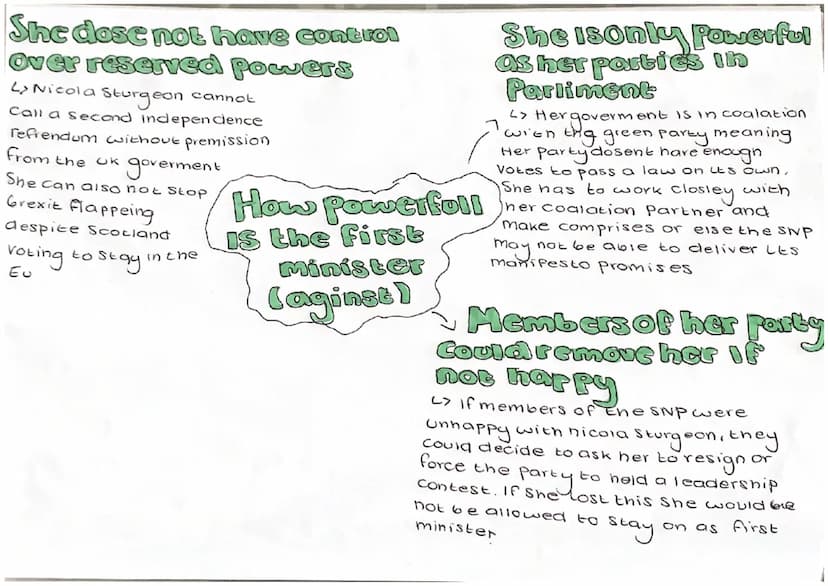 She dose not have control
over reserved powers
↳ Nicola Sturgeon cannot
call a second independence
refrendum without premission
from the UK goverment
She can also not stop
Brexit flappeing
despite Scotland
voting to stay in the
EU
How powerfull
is the first
minister
(aginst)
She is only powerful
as her parties in
Parliment
↳ Her goverment is in coalation
with the green party meaning
Her party dosent have enough
votes to pass a law on its own.
She has to work closley with
her coalation partner and
make comprises or else the SNP
may not be able to deliver its
manifesto promises
Members of her party
could remove her if
not happy
↳ If members of the SNP were
unhappy with nicola Sturgeon, they
could decide to ask her to resign or
force the party to hold a leadership
contest. If she lost this she would
not be allowed to stay on as first
minister.